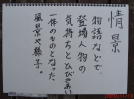 情景
物語などで、
登場人物の
気持ちとひびきあい
一体のものとなった
風景や様子。